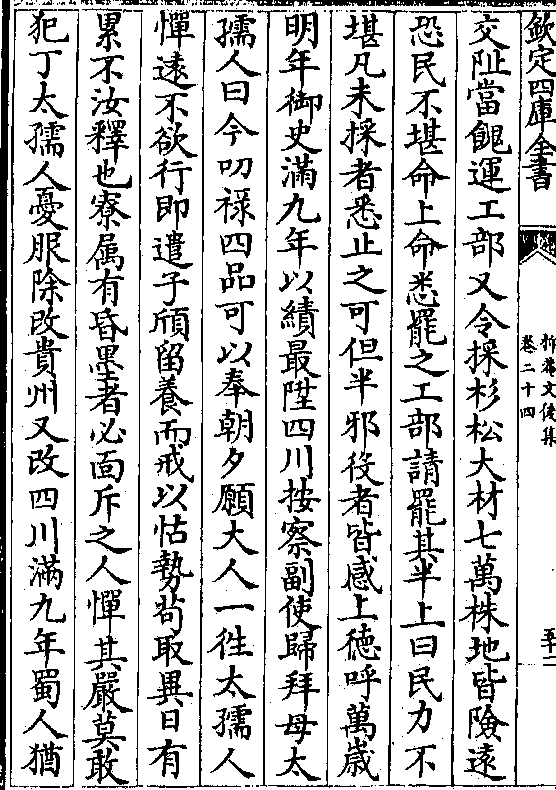 欽定四庫全書
抑菴文後集
卷二十四
交阯當餽運工部又令採杉松大材七萬株地皆險遠
恐民不堪命上命悉罷之工部請罷其半上曰民力不
堪凡未採者悉止之可但半邪役者皆感上德呼萬歲
明年御史滿九年以績最陞四川按察副使歸拜母太
孺人曰今叨祿四品可以奉朝夕願大人一徃太孺人
憚遠不欲行即遣子頎留養而戒以怙勢茍取異日有
累不汝釋也寮屬有昏墨者必面斥之人憚其嚴莫敢
犯丁太孺人憂服除改貴州又改四川滿九年蜀人猶